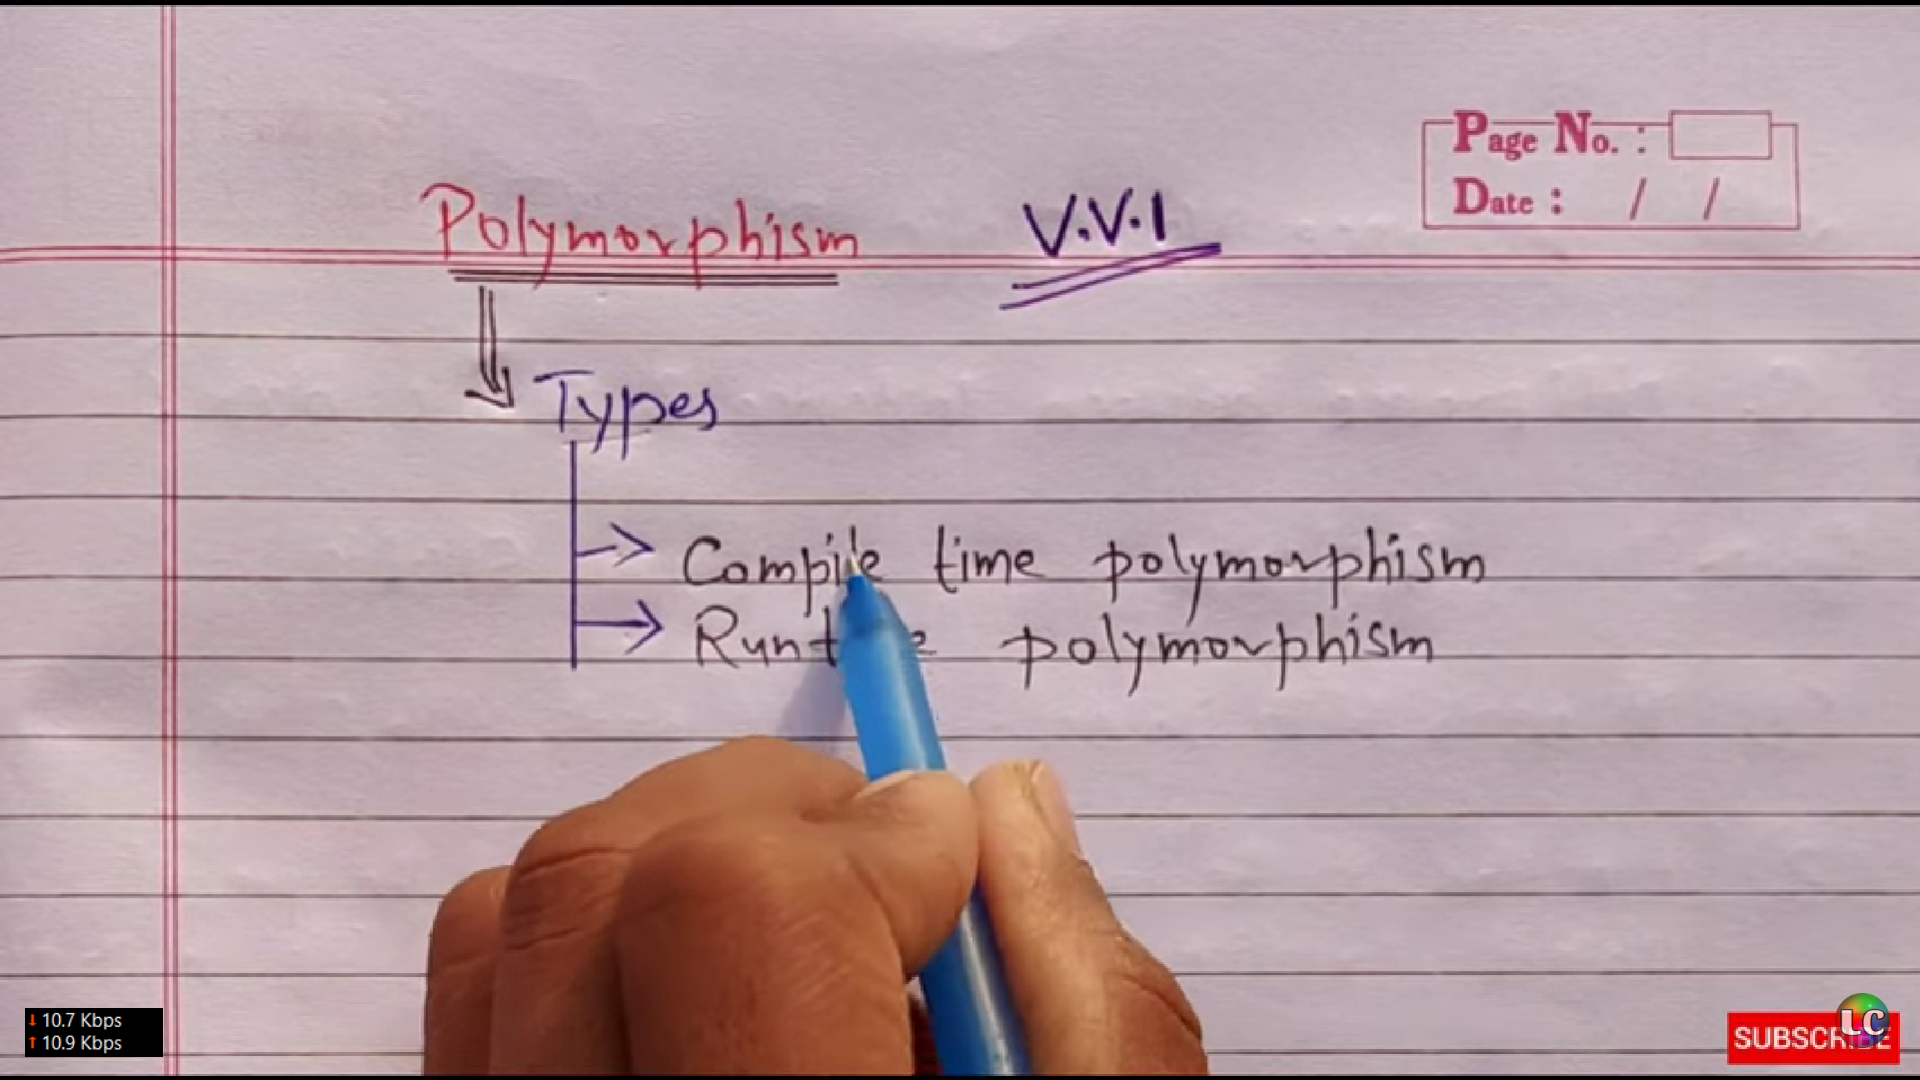 Page No. :
Date : / /
Polymorphism V.V.I
Types
Compile time polymorphism
polymorphism
↓ 10.7 Kbps
↑ 10.9 Kbps
LC
SUBSCRIBE